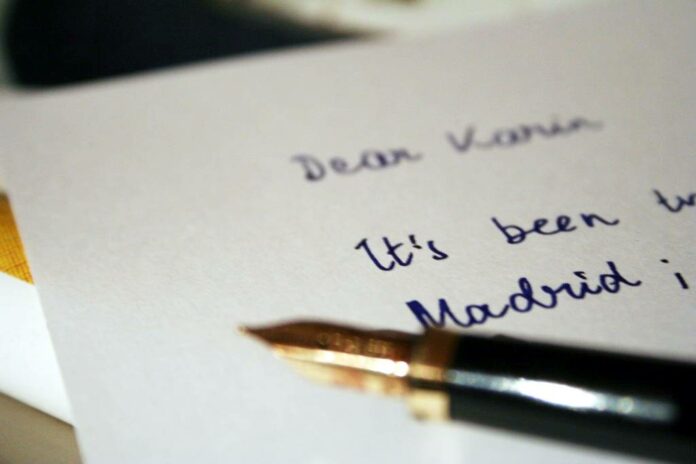 Dear Karin
It's been
Madrid i